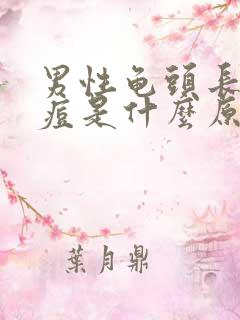 男性龟頭長
痘是什麼原
葉月鼎